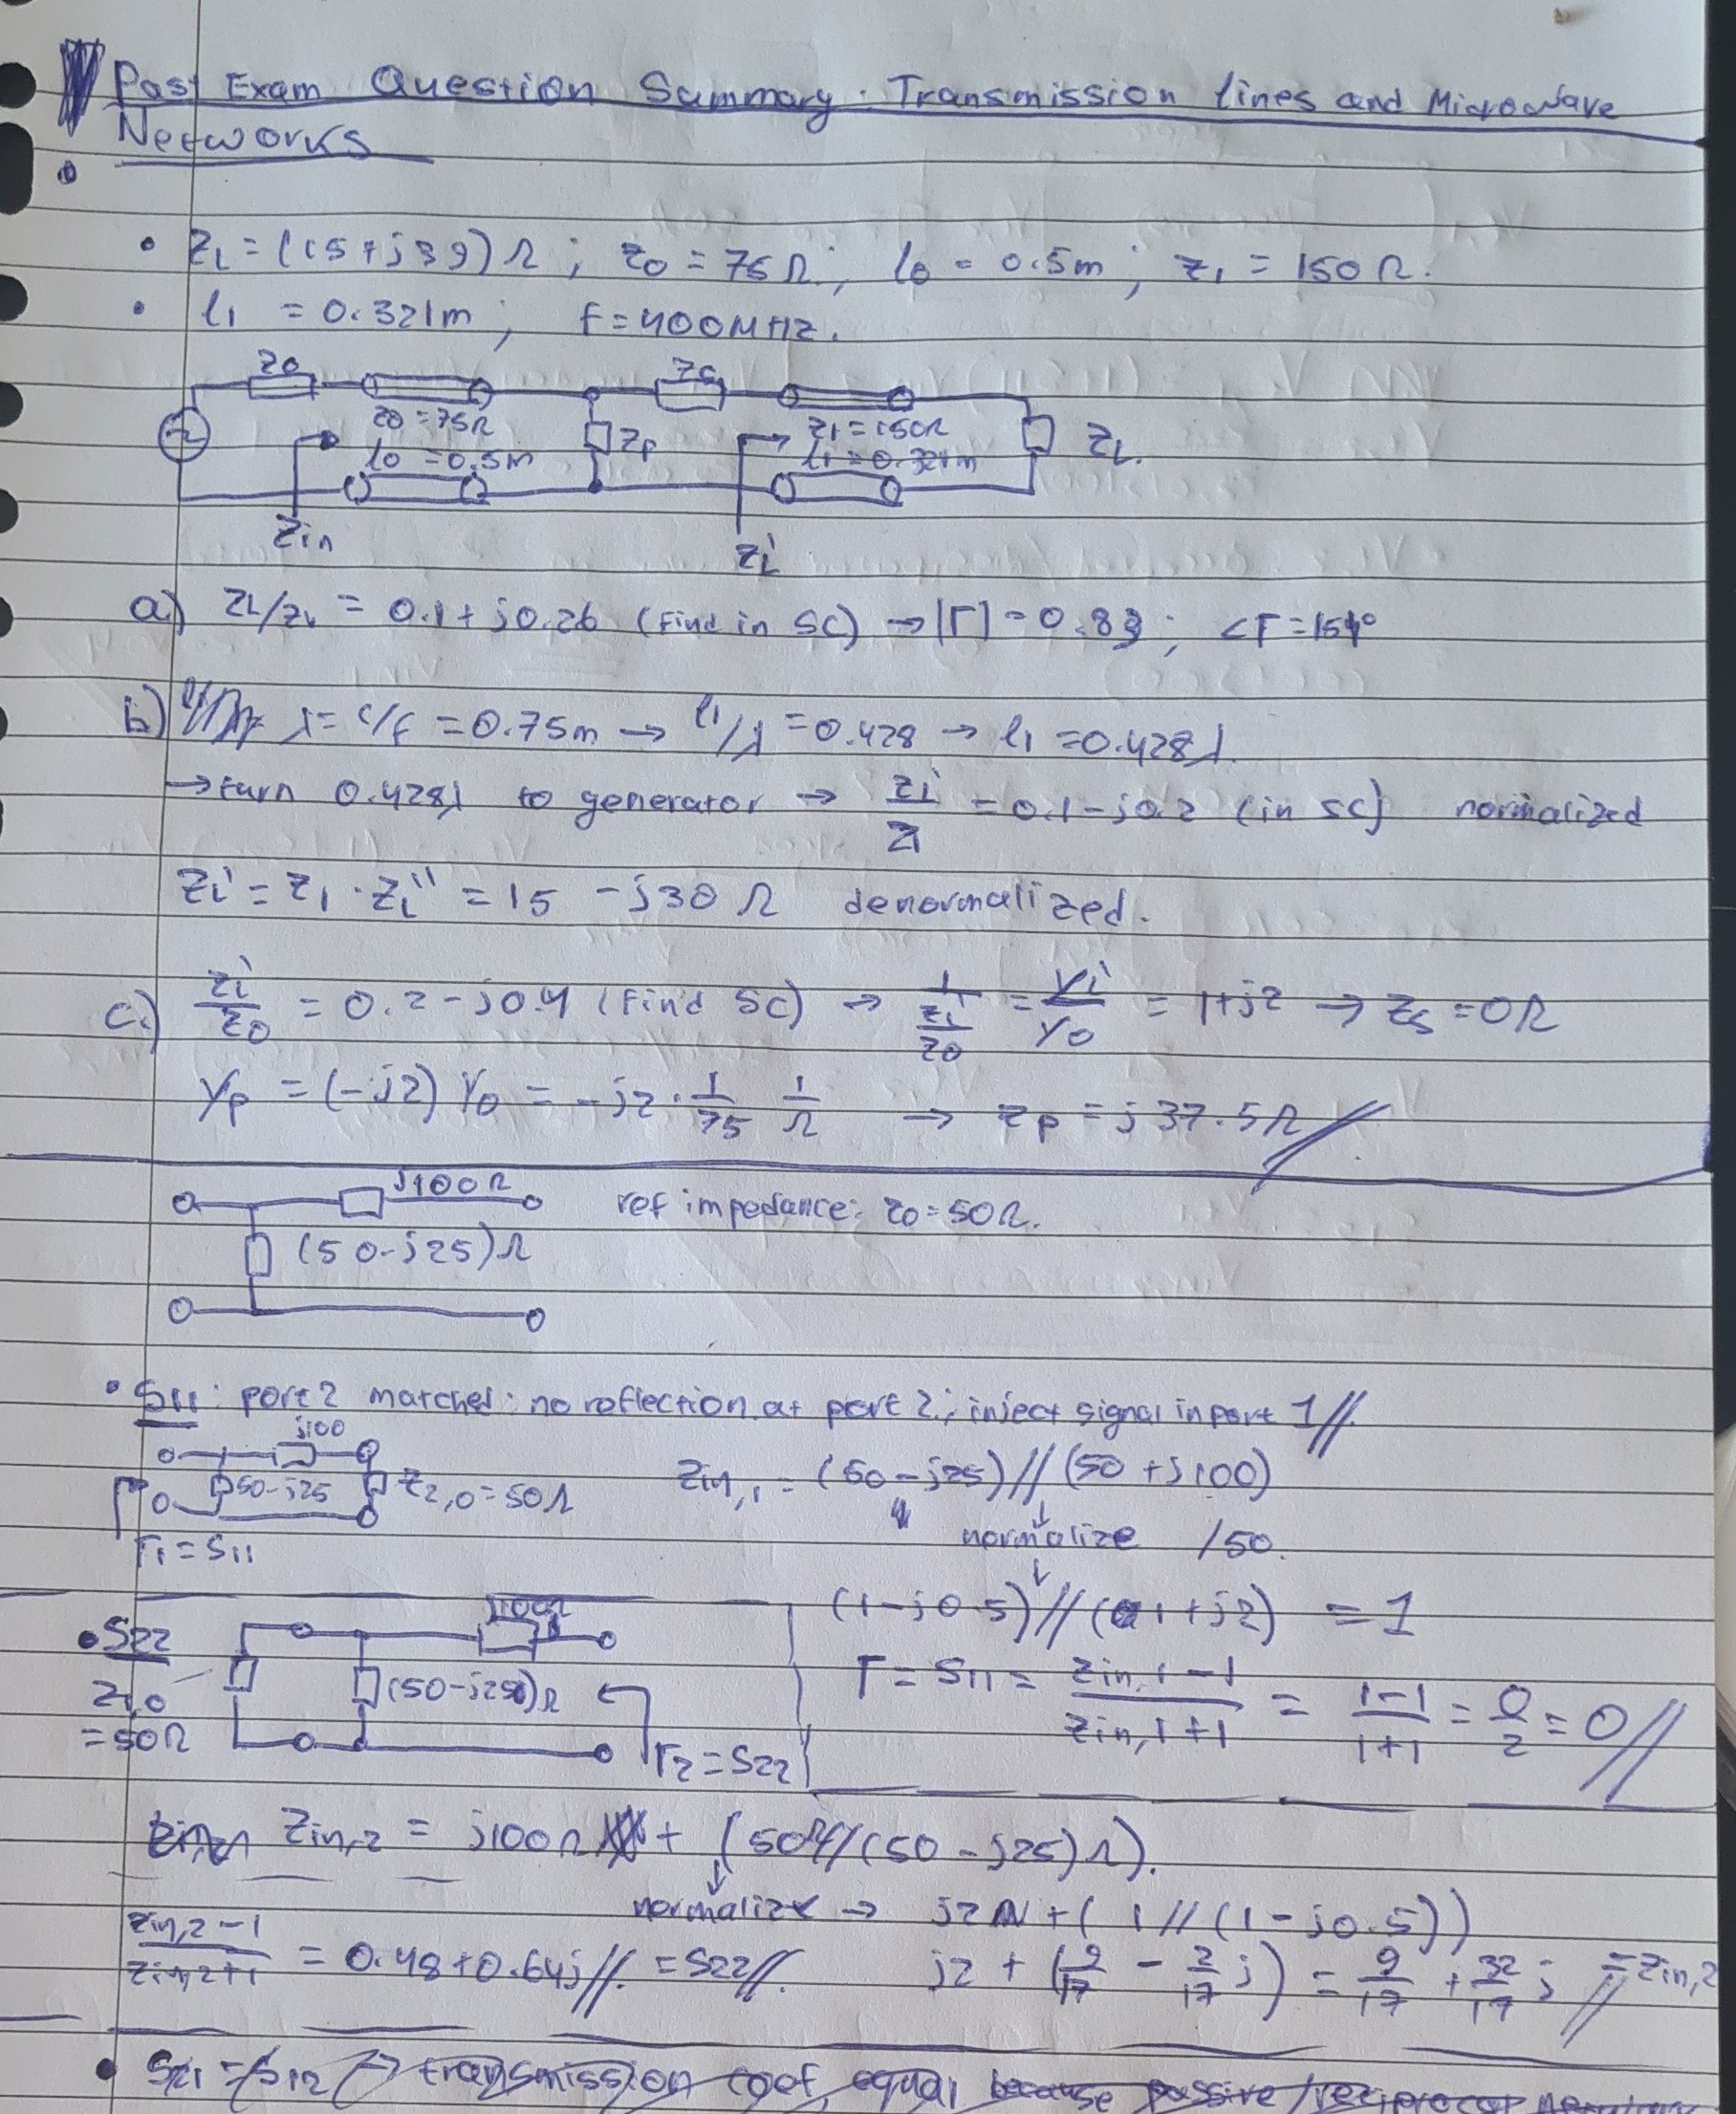 Past Exam Question Summary: Transmission lines and Microwave
Networks
• ZL = (15 + j39)Ω ; Z0 = 75Ω ; l0 = 0.5m ; Z1 = 150Ω.
• l1 = 0.321m ; f = 400MHz.
Z0
Zs
Z0 = 75Ω
l0 = 0.5m
Zp
Z1 = 150Ω
l1 = 0.321m
ZL.
Zin
Zi
a) = 0.1 + j0.26 (Find in SC) → |Γ| = 0.83 ; ∠Γ = 154°
b) λ = c/f = 0.75m → l1/λ = 0.428 → l1 = 0.428λ.
→ turn 0.428λ to generator → Zi/Z1 = 0.1 - j0.2 (in SC) normalized
Zi = Z1 · Zi'' = 15 - j30 Ω denormalized.
c.) Zi/Z0 = 0.2 - j0.4 (Find SC) → 1/(Zi/Z0) = Yi/Y0 = 1+j2 → Zs = 0Ω
Yp = (-j2) Y0 = -j2 · 1/75 1/Ω → Zp = j37.5Ω //
j100Ω
ref impedance: Z0 = 50Ω.
(50-j25)Ω
• S11 : port 2 matched : no reflection at port 2 ; inject signal in port 1 //
j100
50-j25
Z2,0 = 50Ω
Zin,1 = (50 - j25) // (50 + j100)
normalize /50.
Γ1 = S11
(1 - j0.5) // (1 + j2) = 1
• S22
j100Ω
Z1,0
= 50Ω
(50-j25)Ω
Γ2 = S22
Γ = S11 = (Zin,1 - 1)/(Zin,1 + 1) = (1-1)/(1+1) = 0/2 = 0 //
Zin,2 = j100Ω + (50Ω//(50 - j25)Ω).
normalize → j2 + ( 1 // (1 - j0.5))
(Zin,2 - 1)/(Zin,2 + 1) = 0.48 + 0.64j //. = S22 //.
j2 + (9/17 - 2/17 j) = 9/17 + 32/17 j // = Zin,2
• S21 = S12 → transmission coef equal because passive/reciprocal